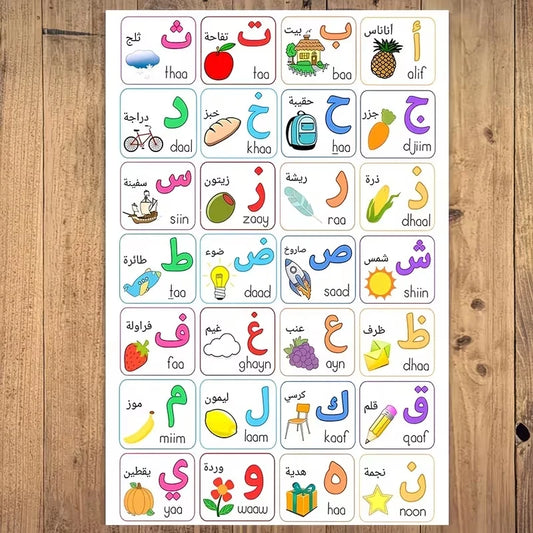 أ
أناناس
alif
ب
بيت
baa
ت
تفاحة
taa
ث
ثلج
thaa
ج
جزر
djiim
ح
حقيبة
haa
خ
خبز
khaa
د
دراجة
daal
ذ
ذرة
dhaal
ر
ريشة
raa
ز
زيتون
zaay
س
سفينة
siin
ش
شمس
shiin
ص
صاروخ
saad
ض
ضوء
daad
ط
طائرة
taa
ظ
ظرف
dhaa
ع
عنب
ayn
غ
غيم
ghayn
ف
فراولة
faa
ق
قلم
qaaf
ك
كرسي
kaaf
ل
ليمون
laam
م
موز
miim
ن
نجمة
noon
ه
هدية
haa
و
وردة
waaw
ي
يقطين
yaa